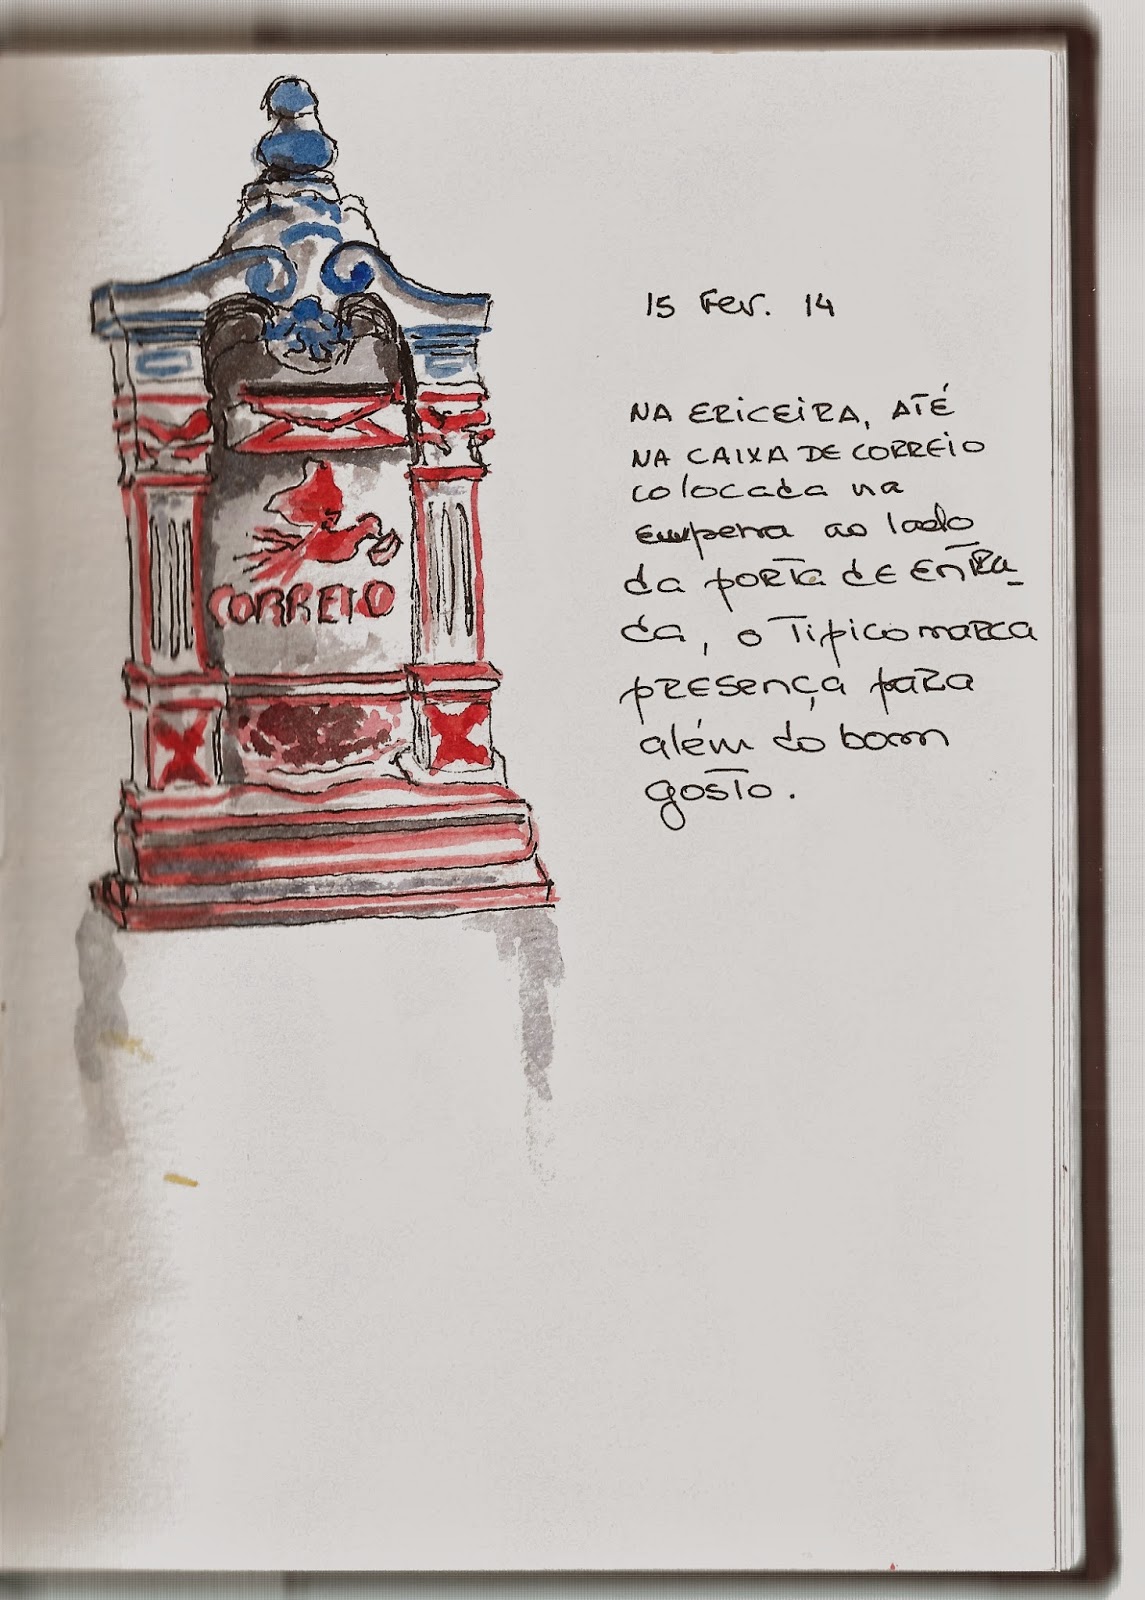 CORREIO
15 Fev. 14
NA ERICEIRA, ATÉ
NA CAIXA DE CORREIO
colocada na
empena ao lado
da porta de entra-
da, o Tipico marca
presença para
além do bom
gosto.